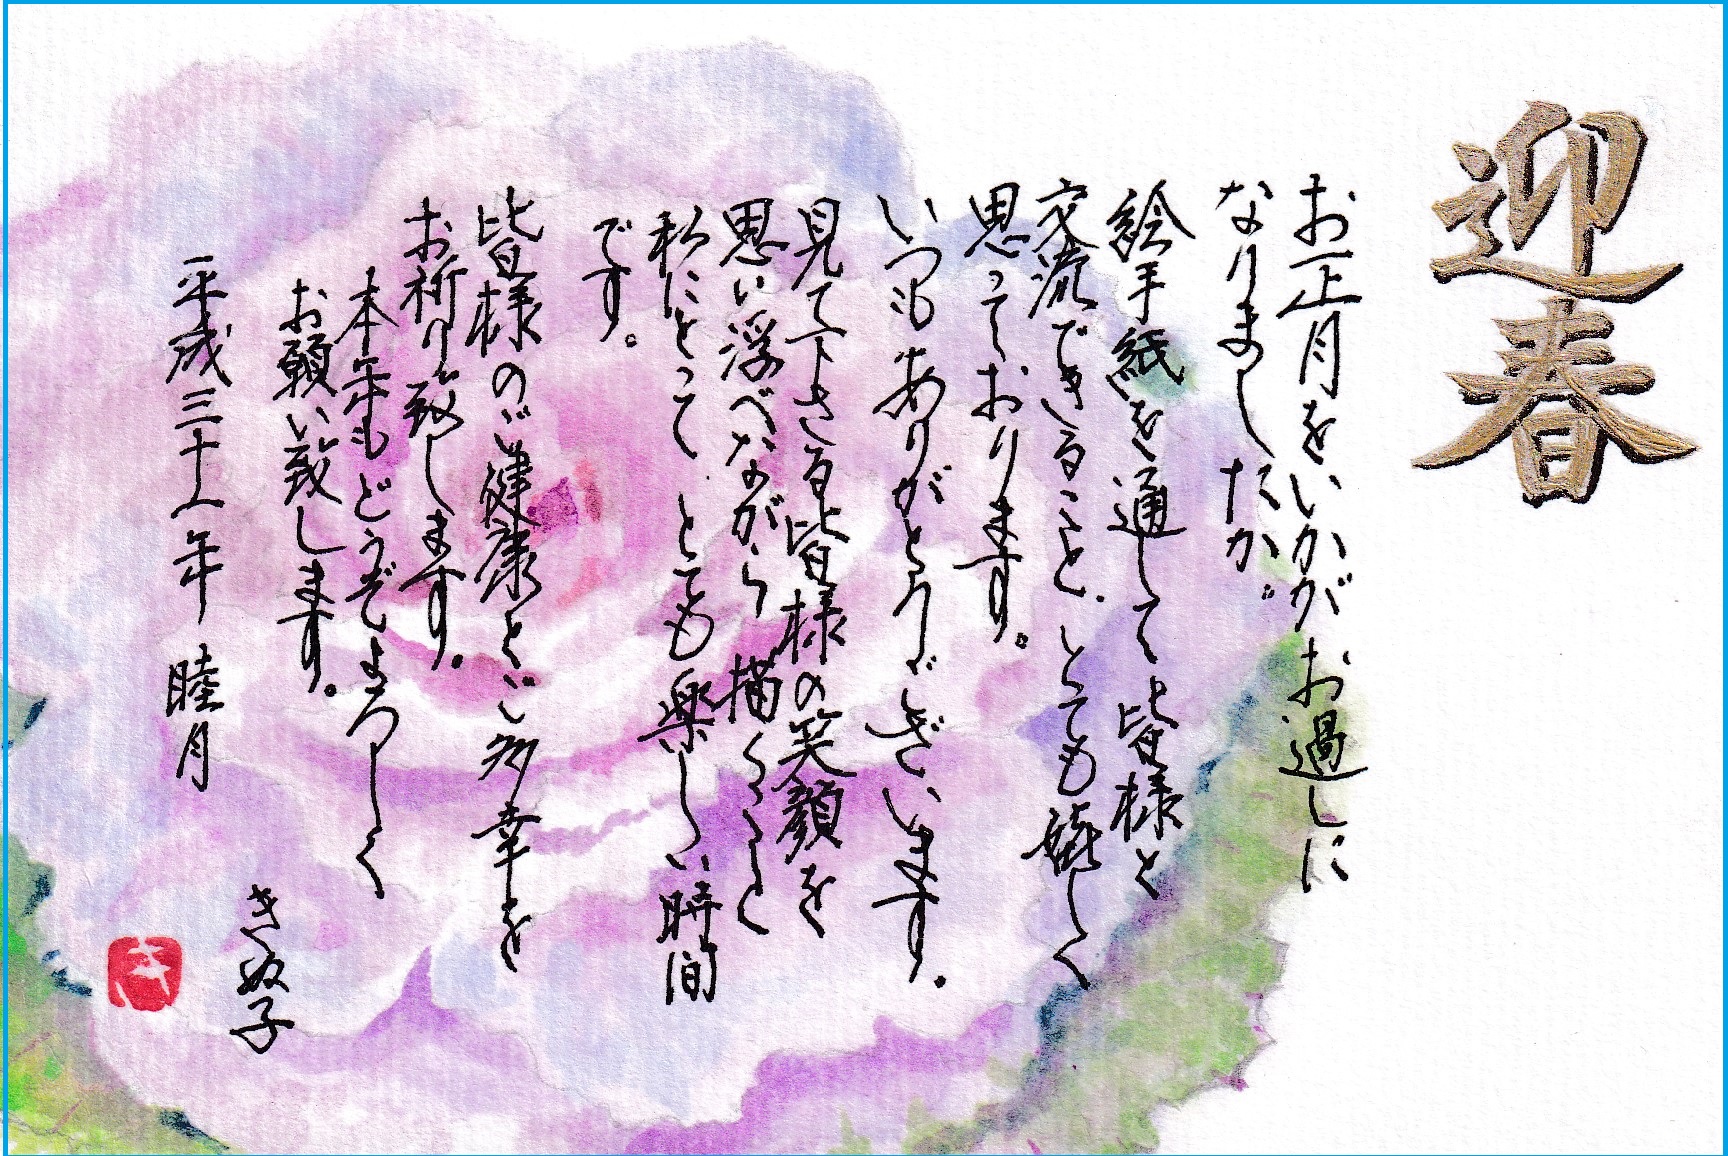 迎春
お正月をいかがお過しに
なりましたか。
絵手紙を通して皆様と
交流できること、とても嬉しく
思っております。
いつもありがとうございます。
見て下さる皆様の笑顔を
思い浮べながら描くこと
私にとって とても楽しい時間
です。
皆様のご健康とご多幸を
お祈り致します。
本年もどうぞよろしく
お願い致します。
平成三十一年 睦月
きぬ子
き